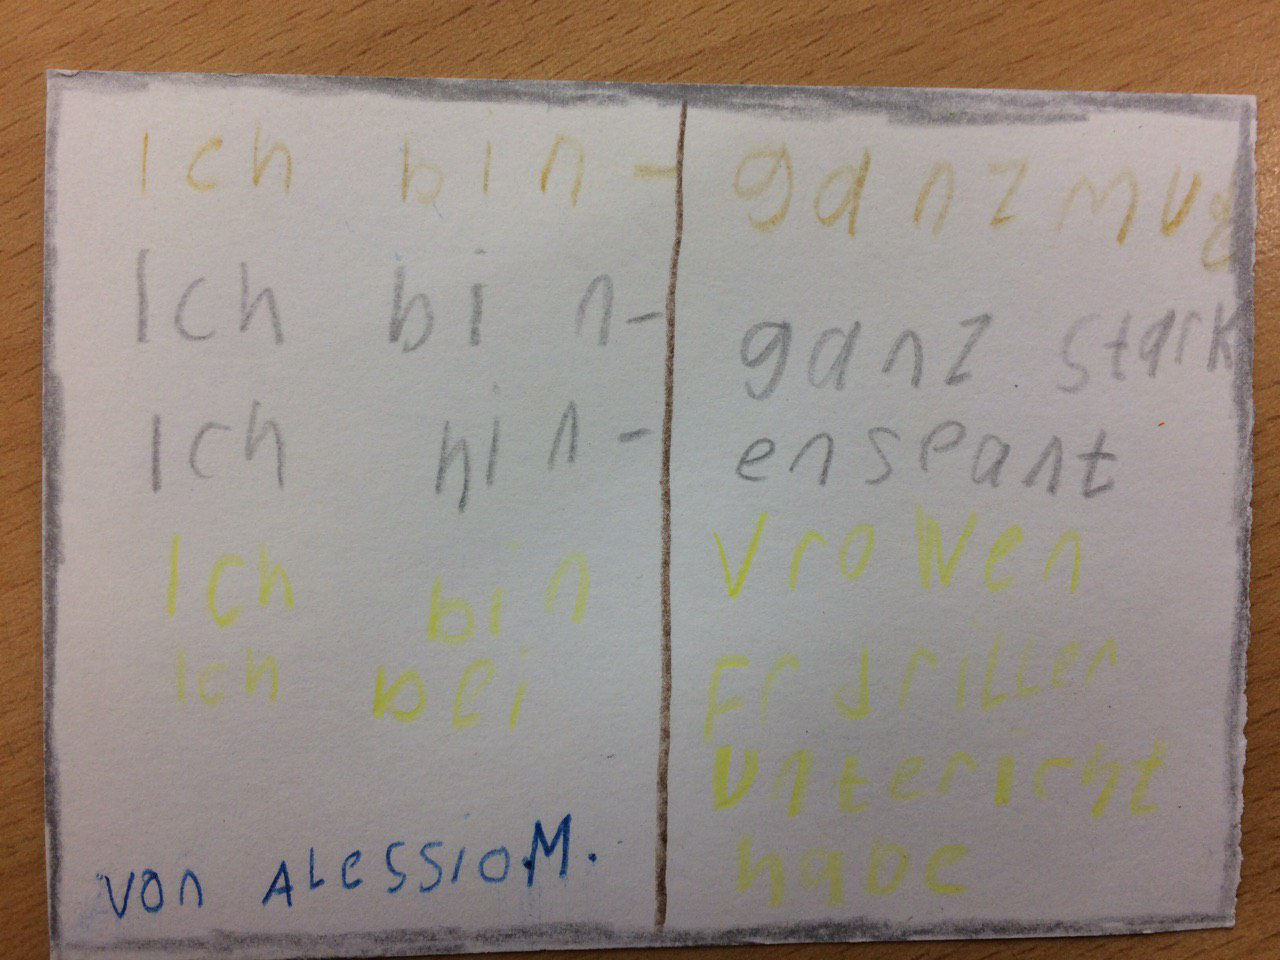 Ich bin - ganz mug
Ich bin - ganz stark
Ich nin - enseant
Ich bin vrowen
Ich bei Er driller
untericht
habe
von ALessio M.